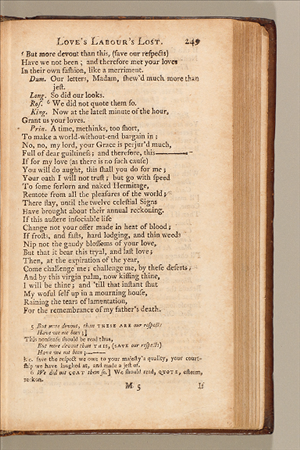 LOVE's LABOUR's LOST. 249
⁵ But more devout than this, (save our respects)
Have we not been ; and therefore met your loves
In their own fashion, like a merriment.
Dum. Our letters, Madam, shew'd much more than
jest.
Long. So did our looks.
Ros. ⁶ We did not quote them so.
King. Now at the latest minute of the hour,
Grant us your loves.
Prin. A time, methinks, too short,
To make a world-without-end bargain in ;
No, no, my lord, your Grace is perjur'd much,
Full of dear guiltiness; and therefore, this———
If for my love (as there is no such cause)
You will do aught, this shall you do for me;
Your oath I will not trust; but go with speed
To some forlorn and naked Hermitage,
Remote from all the pleasures of the world;
There stay, until the twelve celestial Signs
Have brought about their annual reckoning.
If this austere insociable life
Change not your offer made in heat of blood;
If frosts, and fasts, hard lodging, and thin weeds
Nip not the gaudy blossoms of your love,
But that it bear this tryal, and last love;
Then, at the expiration of the year,
Come challenge me; challenge me, by these deserts;
And by this virgin palm, now kissing thine,
I will be thine; and 'till that instant shut
My woful self up in a mourning house,
Raining the tears of lamentation,
For the remembrance of my father's death.
5 But more devout, than THESE ARE our respects
Have we not been ;]
This nonsense should be read thus,
But more devout than THIS, (SAVE our respects)
Have we not been ;———
i. e. save the respect we owe to your majesty's quality, your court-
ship we have laughed at, and made a jest of.
6 We did not COAT them so.] We should read, QUOTE, esteem,
reckon.
M 5 If